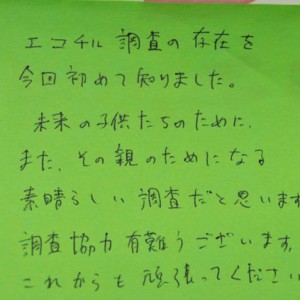 エコチル調査の存在を
今回初めて知りました。
未来の子供たちのために、
また、その親のためになる
素晴らしい調査だと思います
調査協力有難うございます。
これからも頑張ってください